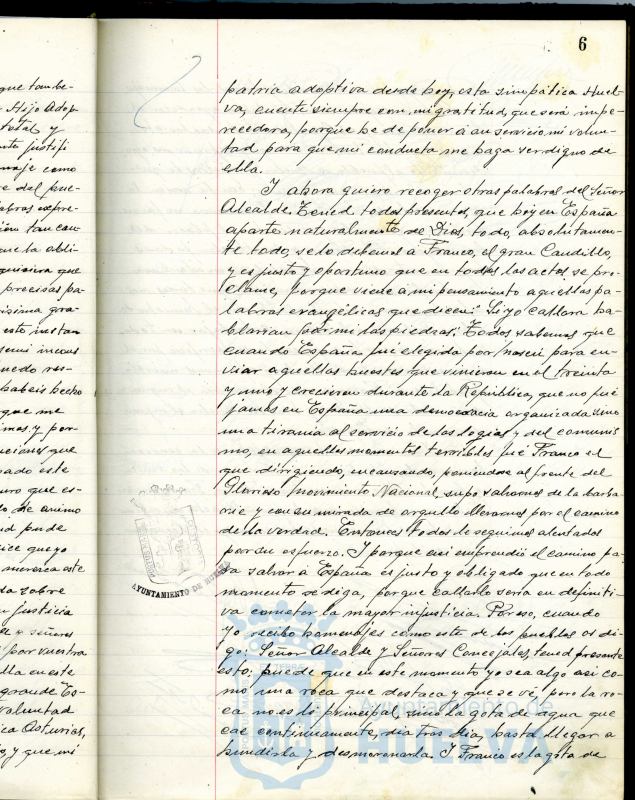 6
patria adoptiva desde hoy, esta simpática Huel-
va, cuente siempre con mi gratitud, que será impe-
recedera, porque he de poner á su servicio mi volun-
tad para que mi conducta me haga ser digno de
ella.
I ahora quiero recoger otras palabras del Señor
Alcalde. Tened todos presentes, que hoy en España
aparte naturalmente de Dios, todo, absolutamen-
te todo, se lo debemos á Franco, el gran Caudillo,
y es justo y oportuno que en todos los actos se pro-
clame, porque viene á mi pensamiento aquellas pa-
labras evangélicas que dicen: "Si yo callara ha-
blarían por mi las piedras". Todos sabemos que
cuando España fué elegida por para en-
viar aquellas huestes que vinieron en el treinta
y uno y crecieron durante la República, que no fué
jamás en España una democracia organizada sino
una tiranía al servicio de las logias y del comunis
mo, en aquellos momentos terribles fué Franco el
que dirigiendo, encauzando, poniéndose al frente del
Glorioso Movimiento Nacional, supo salvarnos de la barba-
rie y con su mirada de orgullo llevarnos por el camino
de la verdad. Entonces todos le seguimos alentados
por su esfuerzo. I porque así emprendió el camino pa-
ra salvar á España es justo y obligado que en todo
momento se diga, porque callarlo sería en definiti-
va cometer la mayor injusticia. Por eso, cuando
yo recibo homenajes como este de los pueblos os di-
go: Señor Alcalde y Señores Concejales, tened presente
esto; puede que en este momento yo sea algo así co-
mo una roca que destaca y que se ve, pero la ro-
ca no es lo principal, sino la gota de agua que
cae continuamente, dia tras dia, hasta llegar a
hundirla y desmoronarla. I Franco es la gota de
que tambe-
Hijo Adop-
total y
justifi
naje como
e del pue-
abras expre-
ión tan cau-
que la obli-
quisiera que
precisas pa-
ísima gra-
este instan
nedo res-
habeis hecho
que me
mes y por-
ciones que
ado este
uro que es-
do de animo
ud pude
ice que yo
merezca este
da sobre
justicia
y señores
por vuestra
lla en este
grande Es-
voluntad
ica Asturias,
y que mi
AYUNTAMIENTO DE HUELVA
Ayuntamiento de
HUELVA